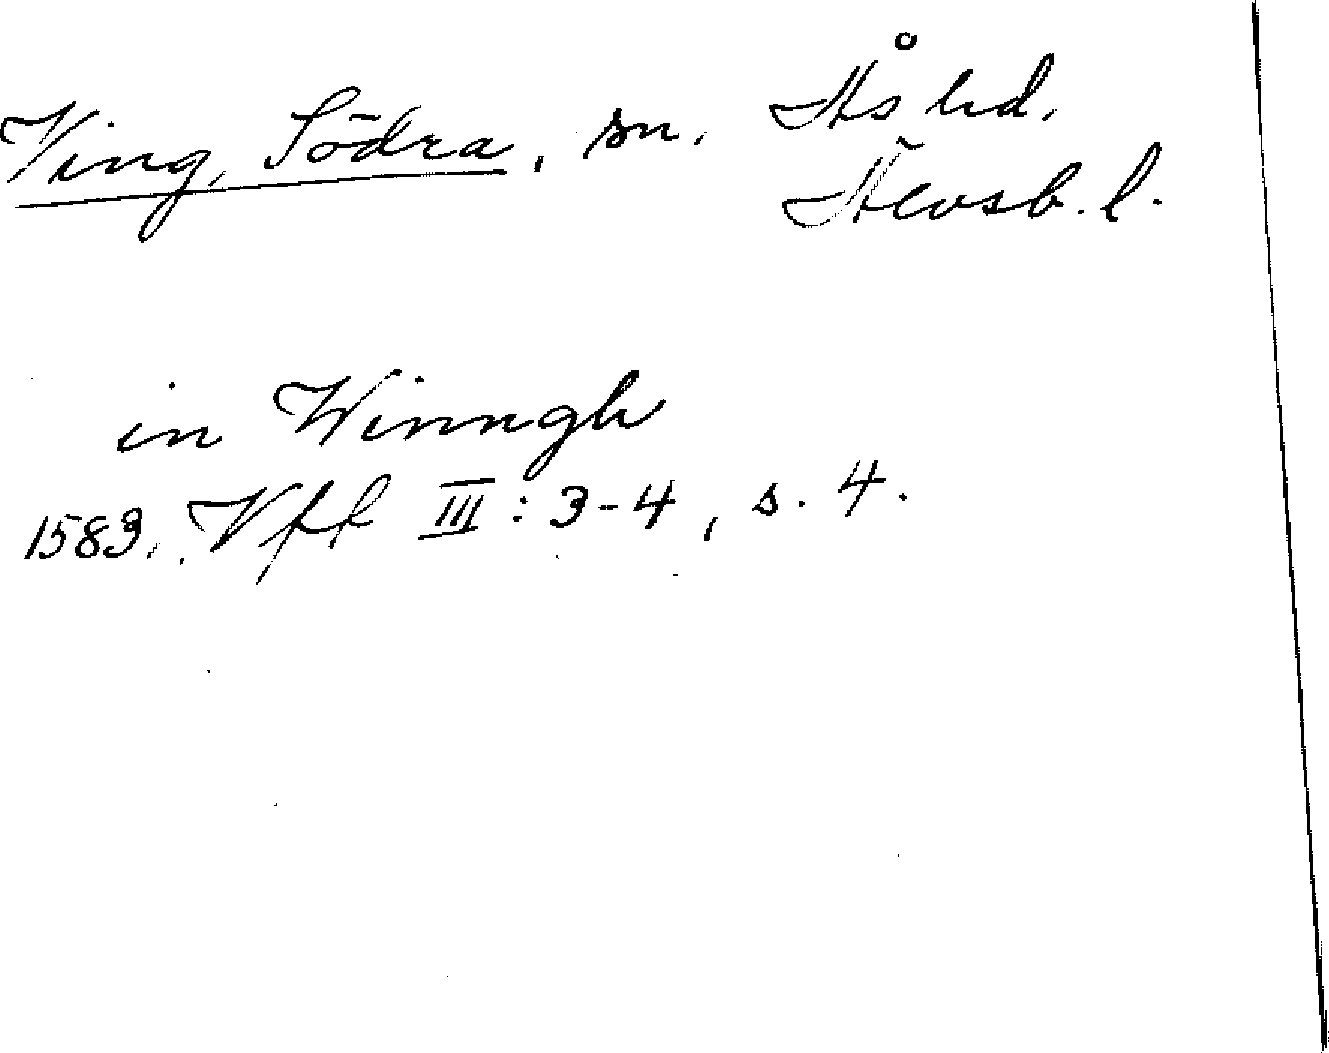 Ving, Södra, sn. Ås hd.
Älvsb. l.
in Winngh
1583. Vfl III: 3-4, s. 4.